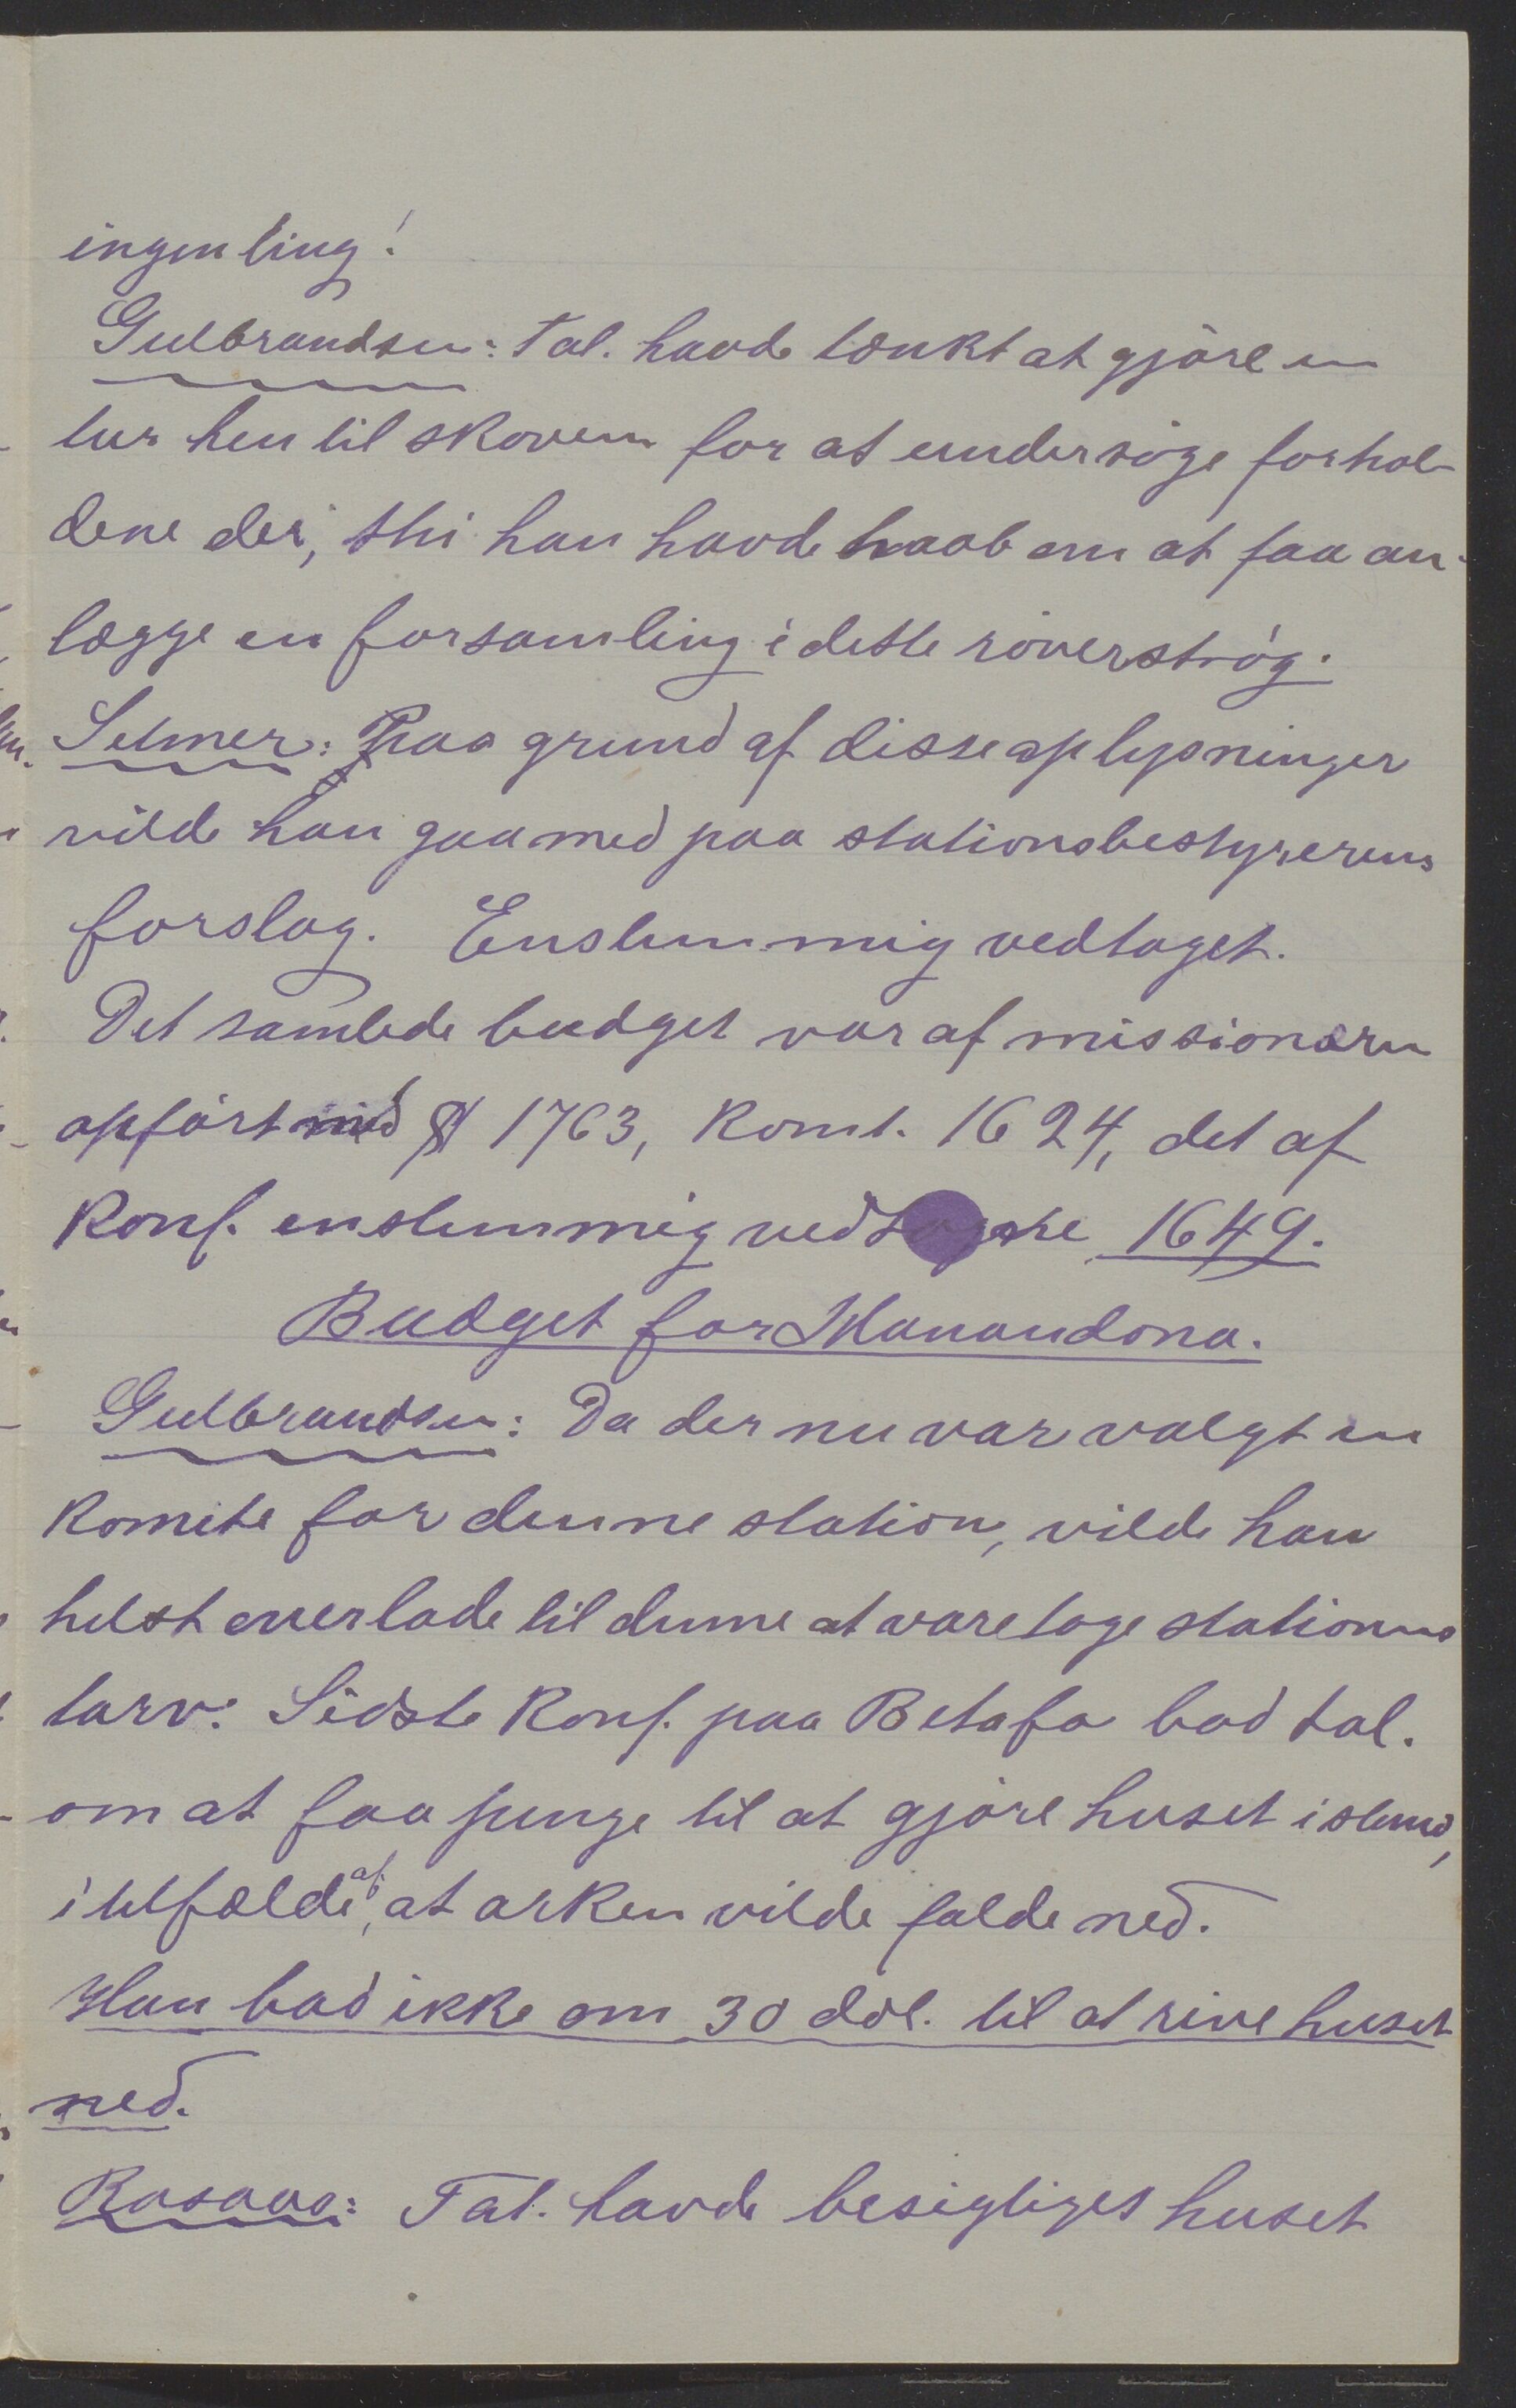 ingenting!
Gulbrandsen: Tal. havde tænkt at gjøre en
tur hen til skoven for at undersøge forhol-
dene der, thi han havde haab om at faa an-
lægge en forsamling i dette røverstrøg.
Selmer: Paa grund af disse oplysninger
vilde han gaa med paa stationsbestyrerens
forslag. Enstemmig vedtaget.
Det samlede budget var af missionæren
opført med $ 1763, Komt. 1624, det af
Konf. enstemmig vedtagne 1649.
Budget for Manandona.
Gulbrandsen: Da der nu var valgt en
Komite for denne station, vilde han
helst overlade til denne at varetage stationens
tarv. Sidste Konf. paa Betafo bad tal.
om at faa penge til at gjøre huset istand,
i tilfælde af, at arken vilde falde ned.
Han bad ikke om 30 dol. til at rive huset
ned.
Rosaas: Tal. havde besigtiget huset